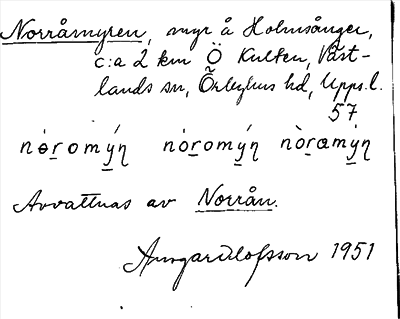 Norråmyren, myr å Holmsånger,
c:a 2 km Ö Kulten, Väst-
lands sn, Örbyhus hd, Upps.l.
57
nòromýn nòromýn nòramýn
Avvattnas av Norrån.
Ansgar Olofsson 1951